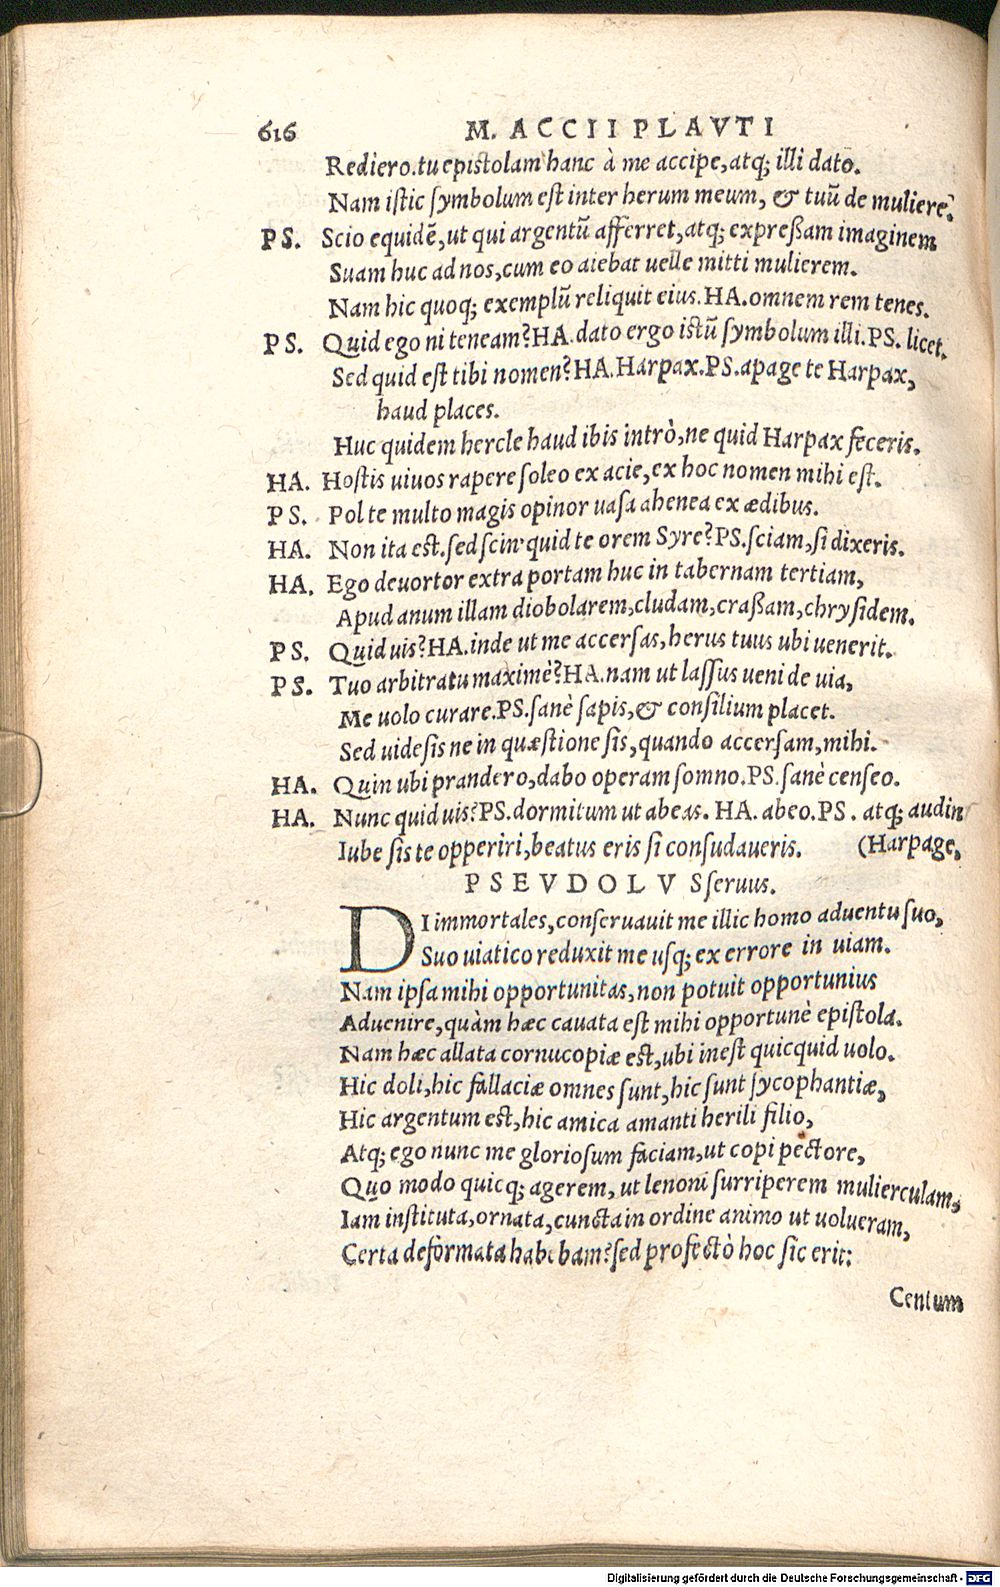 616 M. ACCII PLAVTI
Rediero.tu epistolam hanc à me accipe,atq; illi dato.
Nam istic symbolum est inter herum meum, & tuũ de muliere.
PS. Scio equidẽ,ut qui argentũ afferret,atq; expreßam imaginem
Suam huc ad nos,cum eo aiebat uelle mitti mulierem.
Nam hic quoq; exemplũ reliquit eius.HA.omnem rem tenes.
PS. Quid ego ni teneam?HA.dato ergo istũ symbolum illi.PS. licet.
Sed quid est tibi nomen?HA.Harpax.PS.apage te Harpax,
haud places.
Huc quidem hercle haud ibis intrò,ne quid Harpax feceris.
HA. Hostis uiuos rapere soleo ex acie,ex hoc nomen mihi est.
PS. Pol te multo magis opinor uasa ahenea ex ædibus.
HA. Non ita est.sed scin' quid te orem Syre?PS.sciam,si dixeris.
HA. Ego deuortor extra portam huc in tabernam tertiam,
Apud anum illam diobolarem,cludam,craßam,chrysidem.
PS. Quid uis?HA.inde ut me accersas,herus tuus ubi uenerit.
PS. Tuo arbitratu maximè?HA.nam ut lassus ueni de uia,
Me uolo curare.PS.sanè sapis,& consilium placet.
Sed uide sis ne in quæstione sis,quando accersam,mihi.
HA. Quin ubi prandero,dabo operam somno.PS.sanè censeo.
HA. Nunc quid uis?PS.dormitum ut abeas. HA. abeo.PS. atq; audin
Iube sis te opperiri,beatus eris si consudaueris. (Harpage,
PSEVDOLVS seruus.
DI immortales,conseruauit me illic homo aduentu suo,
Suo uiatico reduxit me usq; ex errore in uiam.
Nam ipsa mihi opportunitas,non potuit opportunius
Aduenire,quàm hæc cauata est mihi opportunè epistola.
Nam hæc allata cornucopiæ est,ubi inest quicquid uolo.
Hic doli,hic fallaciæ omnes sunt,hic sunt sycophantiæ,
Hic argentum est,hic amica amanti herili filio,
Atq; ego nunc me gloriosum faciam,ut copi pectore,
Quo modo quicq; agerem, ut lenoni surriperem mulierculam,
Iam instituta,ornata,cuncta in ordine animo ut uolueram,
Certa deformata habebam?sed profectò hoc sic erit:
Centum
Digitalisierung gefördert durch die Deutsche Forschungsgemeinschaft - DFG